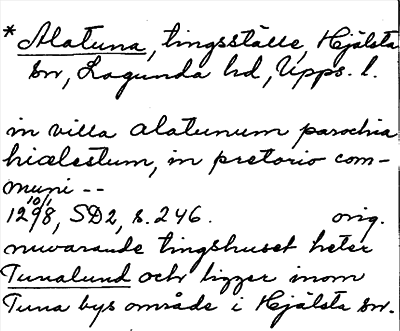 * Alatuna, tingsställe, Hjälsta
sn, Lagunda hd, Upps. l.
in villa alatunum parochia
hiælestum, in pretorio com-
muni --
10/1
1298, SD2, s. 246. orig.
nuvarande tingshuset heter
Tunalund och ligger inom
Tuna bys område i Hjälsta sn.